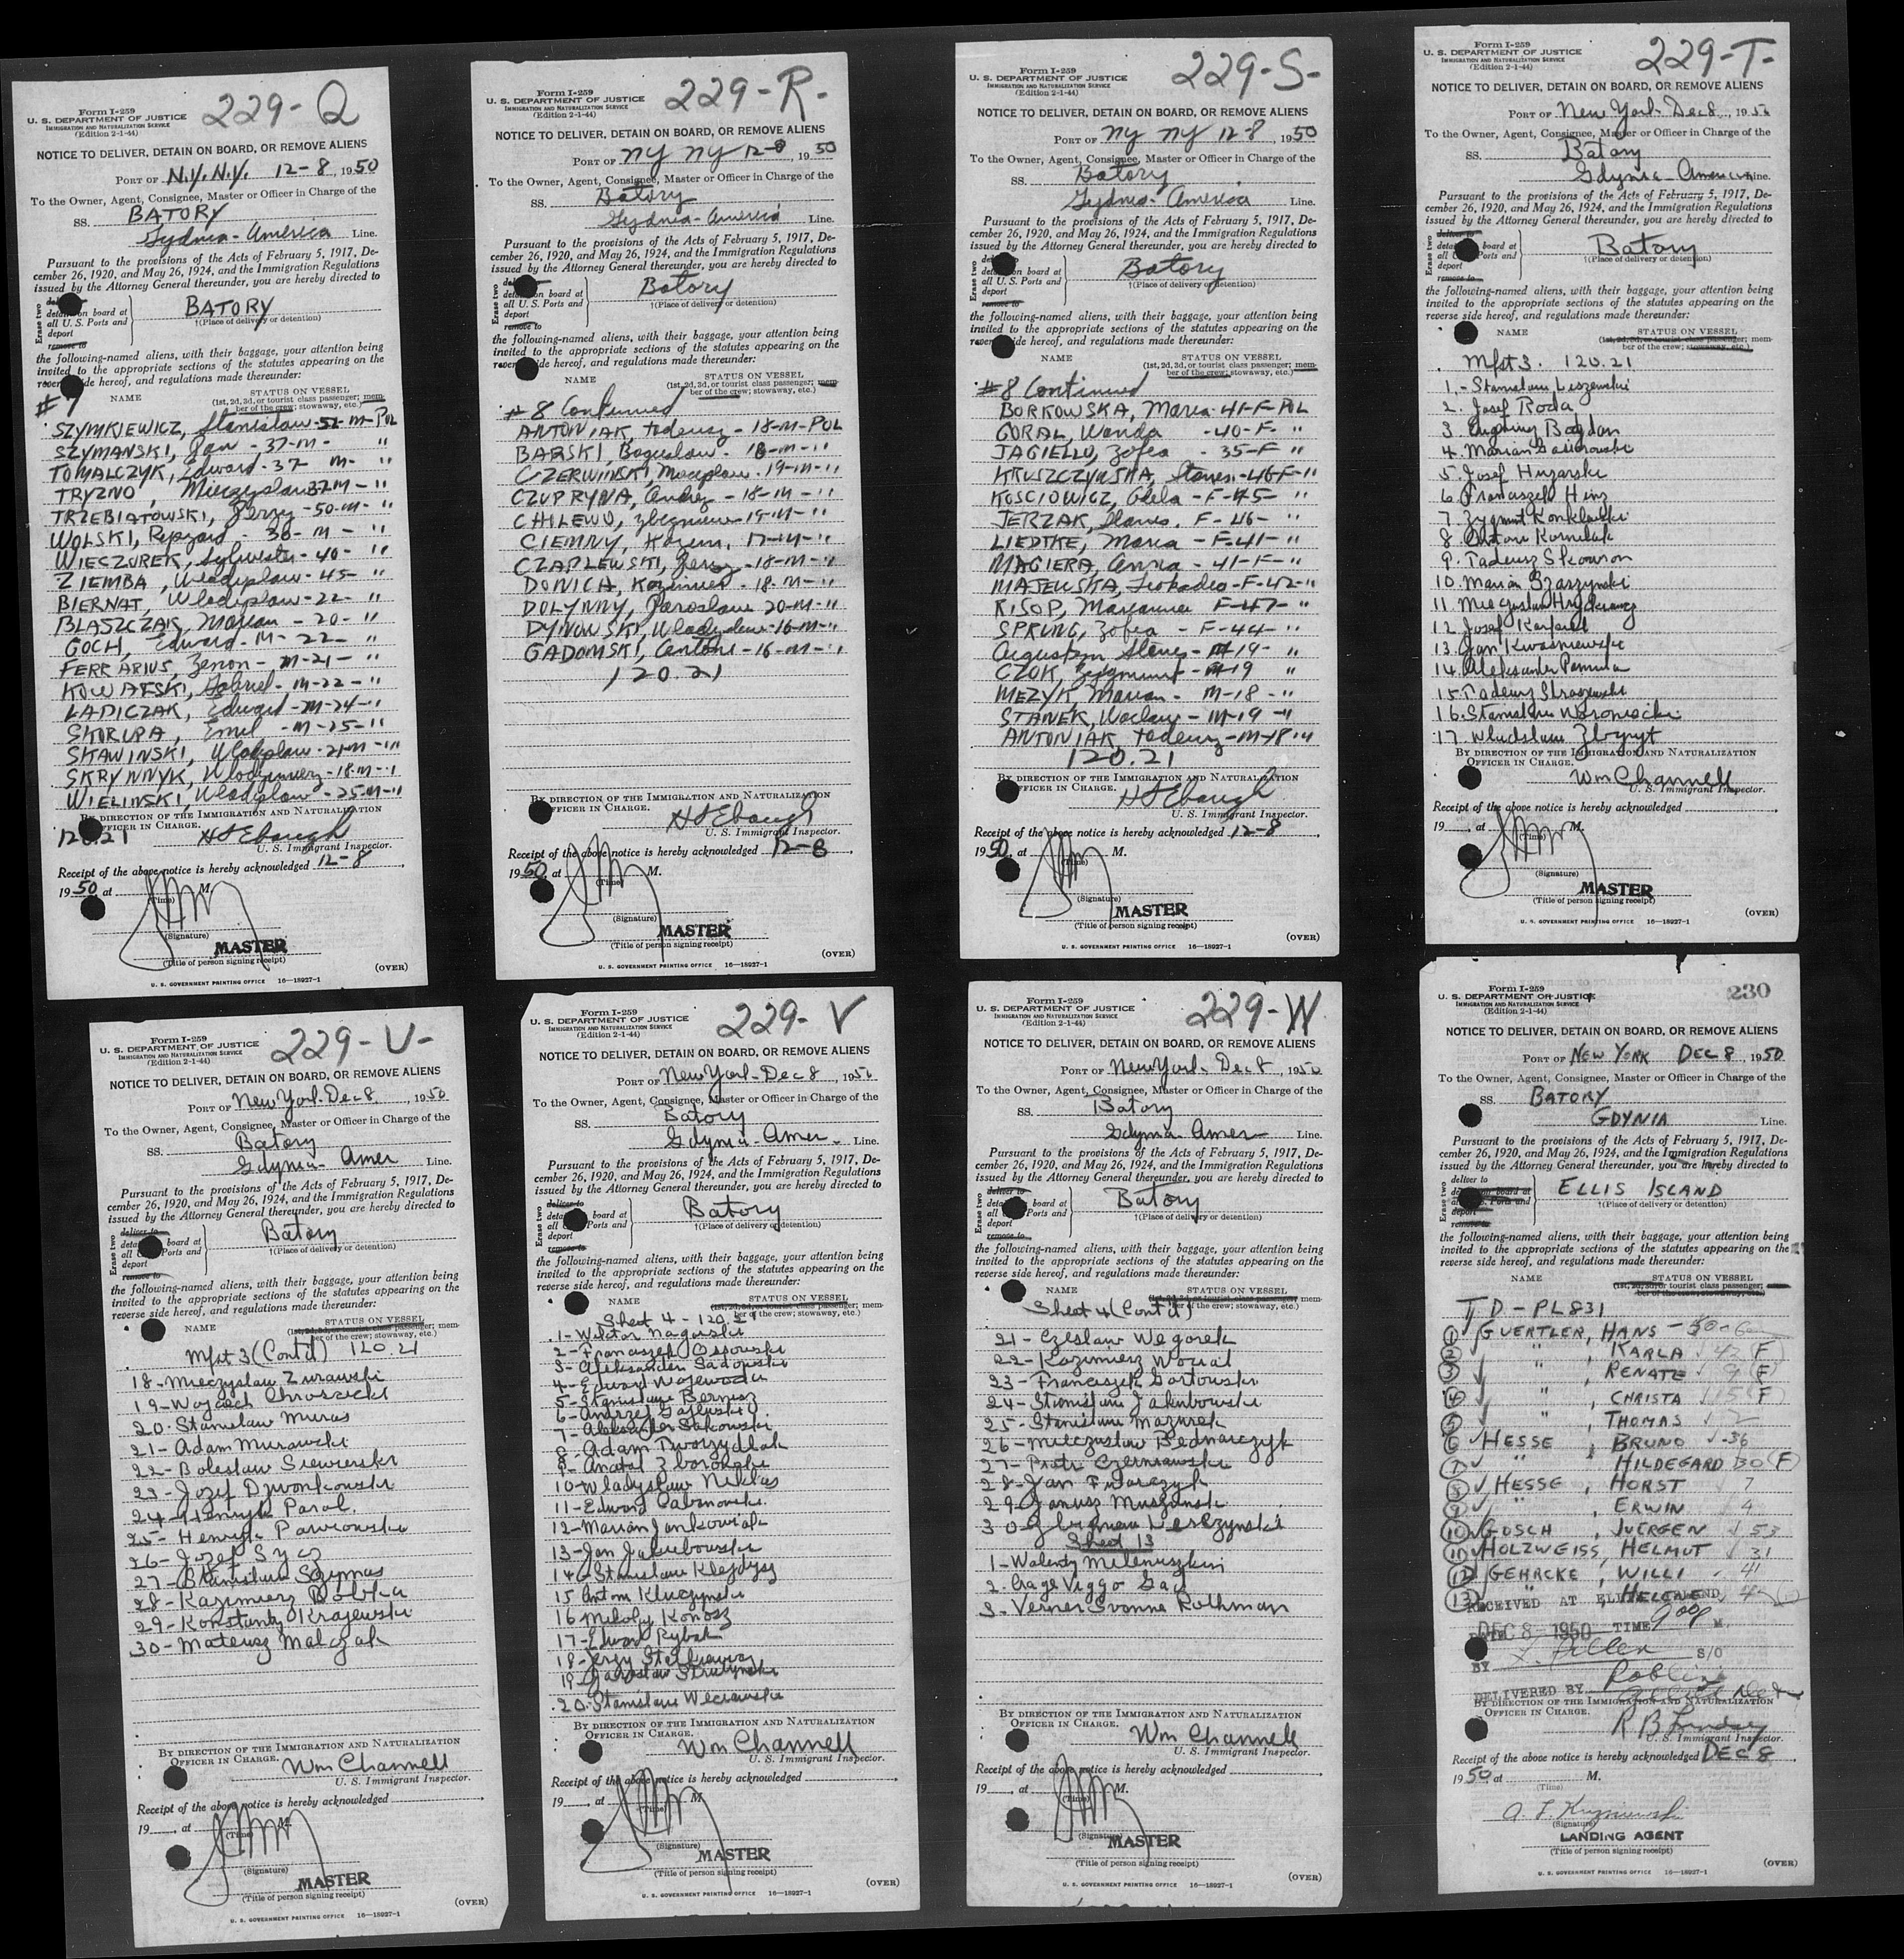 Form I-259
U. S. DEPARTMENT OF JUSTICE
IMMIGRATION AND NATURALIZATION SERVICE
(Edition 2-1-44)
229-Q
NOTICE TO DELIVER, DETAIN ON BOARD, OR REMOVE ALIENS
PORT OF N.Y. N.Y. 12-8, 1950
To the Owner, Agent, Consignee, Master or Officer in Charge of the
SS. BATORY
Gydnia-America Line.
Pursuant to the provisions of the Acts of February 5, 1917, De-
cember 26, 1920, and May 26, 1924, and the Immigration Regulations
issued by the Attorney General thereunder, you are hereby directed to
Erase two
detain on board at
all U. S. Ports and
deport
remove to
BATORY
†(Place of delivery or detention)
the following-named aliens, with their baggage, your attention being
invited to the appropriate sections of the statutes appearing on the
reverse side hereof, and regulations made thereunder:
#7 NAME STATUS ON VESSEL
(1st, 2d, 3d, or tourist class passenger; mem-
ber of the crew; stowaway, etc.)
SZYMKIEWICZ, Stanislaw-52-M-POL
SZYMANSKI, Jan - 37-M- "
TOMALCZYK, Edward-37 M- "
TRYZNO, Mieczyslaw 37M- "
TRZEBIATOWSKI, Jerzy -50-M- "
WOLSKI, Ryszard - 36- M - "
WIECZOREK, Sylwester -40- "
ZIEMBA, Wladyslaw-45- "
BIERNAT, Wladyslaw-22- "
BLASZCZAK, Marian - 20- "
GOCH, Edward-M-22- "
FERRARIUS, Zenon - M-21- "
KOWAFSKI, Gabriel-M-22- "
LADICZAK, Edward-M-24- "
SKORUPA, Emil -M-25- "
SKAWINSKI, Wladyslaw-21-M-"
SKRYNNYK, Wlodzimierz-18-M-"
WIELINSKI, Wladyslaw-25-M-"
BY DIRECTION OF THE IMMIGRATION AND NATURALIZATION
OFFICER IN CHARGE.
120.21 H S Ebaugh
U. S. Immigrant Inspector.
Receipt of the above notice is hereby acknowledged 12-8,
1950, at M.
(Time)
(Signature)
MASTER
(Title of person signing receipt)
(OVER)
U. S. GOVERNMENT PRINTING OFFICE 16—18927-1
Form I-259
U. S. DEPARTMENT OF JUSTICE
IMMIGRATION AND NATURALIZATION SERVICE
(Edition 2-1-44)
229-R-
NOTICE TO DELIVER, DETAIN ON BOARD, OR REMOVE ALIENS
PORT OF NY NY 12-8, 1950
To the Owner, Agent, Consignee, Master or Officer in Charge of the
SS. Batory
Gydnia-America Line.
Pursuant to the provisions of the Acts of February 5, 1917, De-
cember 26, 1920, and May 26, 1924, and the Immigration Regulations
issued by the Attorney General thereunder, you are hereby directed to
Erase two
detain on board at
all U. S. Ports and
deport
remove to
Batory
†(Place of delivery or detention)
the following-named aliens, with their baggage, your attention being
invited to the appropriate sections of the statutes appearing on the
reverse side hereof, and regulations made thereunder:
NAME STATUS ON VESSEL
(1st, 2d, 3d, or tourist class passenger; mem-
ber of the crew; stowaway, etc.)
#8 Continued
ANTONIAK, Tadeusz - 18-M-POL
BARSKI, Boguslaw - 18-M-"
CZERWINSKI, Mieczyslaw-19-M-"
CZUPRYNA, Andrzej -18-M-"
CHILEWO, Zbigniew-19-M-"
CIEMNY, Kazim. 17-M-"
CZAPLEWSKI, Jerzy -18-M-"
DONICA, Kazimierz-18-M-"
DOLYNNY, Jaroslaw 20-M-"
DYNOWSKI, Wladyslaw-16-M-"
GADOMSKI, Antoni-16-M-"
120.21
BY DIRECTION OF THE IMMIGRATION AND NATURALIZATION
OFFICER IN CHARGE.
H S Ebaugh
U. S. Immigrant Inspector.
Receipt of the above notice is hereby acknowledged 12-8
1950, at M.
(Time)
(Signature)
MASTER
(Title of person signing receipt)
(OVER)
U. S. GOVERNMENT PRINTING OFFICE 16—18927-1
Form I-259
U. S. DEPARTMENT OF JUSTICE
IMMIGRATION AND NATURALIZATION SERVICE
(Edition 2-1-44)
229-S-
NOTICE TO DELIVER, DETAIN ON BOARD, OR REMOVE ALIENS
PORT OF NY NY 12-8, 1950
To the Owner, Agent, Consignee, Master or Officer in Charge of the
SS. Batory
Gydnia-America Line.
Pursuant to the provisions of the Acts of February 5, 1917, De-
cember 26, 1920, and May 26, 1924, and the Immigration Regulations
issued by the Attorney General thereunder, you are hereby directed to
Erase two
detain on board at
all U. S. Ports and
deport
remove to
Batory
†(Place of delivery or detention)
the following-named aliens, with their baggage, your attention being
invited to the appropriate sections of the statutes appearing on the
reverse side hereof, and regulations made thereunder:
NAME STATUS ON VESSEL
(1st, 2d, 3d, or tourist class passenger; mem-
ber of the crew; stowaway, etc.)
#8 Continued
BORKOWSKA, Maria-41-F-POL
GORAL, Wanda -40-F- "
JAGIELLO, Zofia - 35-F "
KRUSZCZYNSKA, Stanis-46-F-"
KOSCIOWICZ, Adela -F-45- "
JERZAK, Stanis. F-46- "
LIEDTKE, Maria -F-41- "
MAGIERA, Anna - 41-F-"
MAJEWSKA, Leokadia-F-42-"
RISOP, Marianna F-47- "
SPRUNG, Zofia - F-44- "
Augustyn Stanis- M-19- "
CZOK, Zygmunt - M-19 "
MEZYK, Marian - M-18-"
STANEK, Waclaw - M-19-"
ANTONIAK, Tadeusz-M-18-"
120.21
BY DIRECTION OF THE IMMIGRATION AND NATURALIZATION
OFFICER IN CHARGE.
H S Ebaugh
U. S. Immigrant Inspector.
Receipt of the above notice is hereby acknowledged 12-8,
1950, at M.
(Time)
(Signature)
MASTER
(Title of person signing receipt)
(OVER)
U. S. GOVERNMENT PRINTING OFFICE 16—18927-1
Form I-259
U. S. DEPARTMENT OF JUSTICE
IMMIGRATION AND NATURALIZATION SERVICE
(Edition 2-1-44)
229-T-
NOTICE TO DELIVER, DETAIN ON BOARD, OR REMOVE ALIENS
PORT OF New York-Dec 8, 1950
To the Owner, Agent, Consignee, Master or Officer in Charge of the
SS. Batory
Gdynia-American Line.
Pursuant to the provisions of the Acts of February 5, 1917, De-
cember 26, 1920, and May 26, 1924, and the Immigration Regulations
issued by the Attorney General thereunder, you are hereby directed to
Erase two
deliver to
detain on board at
all U. S. Ports and
deport
remove to
Batory
†(Place of delivery or detention)
the following-named aliens, with their baggage, your attention being
invited to the appropriate sections of the statutes appearing on the
reverse side hereof, and regulations made thereunder:
NAME STATUS ON VESSEL
(1st, 2d, 3d, or tourist class passenger; mem-
ber of the crew; stowaway, etc.)
Mfst 3. 120.21
1.- Stanislaw Leszewski
2. Josef Roda
3. Bogdan
4. Marian
5. Josef Huzarski
6. Franciszek Hinz
7. Zygmunt
8. Antoni Kornilak
9. Tadeusz Skowron
10. Marian Szarzynski
11.
12. Josef
13. Jan Kwasniewski
14. Aleksander
15. Tadeusz Straszewski
16. Stanislaw Woroniecki
17. Wladslaw
BY DIRECTION OF THE IMMIGRATION AND NATURALIZATION
OFFICER IN CHARGE.
Wm Channell
U. S. Immigrant Inspector.
Receipt of the above notice is hereby acknowledged
19, at M.
(Time)
(Signature)
MASTER
(Title of person signing receipt)
(OVER)
U. S. GOVERNMENT PRINTING OFFICE 16—18927-1
Form I-259
U. S. DEPARTMENT OF JUSTICE
IMMIGRATION AND NATURALIZATION SERVICE
(Edition 2-1-44)
229-U-
NOTICE TO DELIVER, DETAIN ON BOARD, OR REMOVE ALIENS
PORT OF New York-Dec 8, 1950
To the Owner, Agent, Consignee, Master or Officer in Charge of the
SS. Batory
Gdynia-Amer Line.
Pursuant to the provisions of the Acts of February 5, 1917, De-
cember 26, 1920, and May 26, 1924, and the Immigration Regulations
issued by the Attorney General thereunder, you are hereby directed to
Erase two
deliver to
detain on board at
all U. S. Ports and
deport
remove to
Batory
†(Place of delivery or detention)
the following-named aliens, with their baggage, your attention being
invited to the appropriate sections of the statutes appearing on the
reverse side hereof, and regulations made thereunder:
NAME STATUS ON VESSEL
(1st, 2d, 3d, or tourist class passenger; mem-
ber of the crew; stowaway, etc.)
Mfst 3 (Cont'd) 120.21
18-Mieczyslaw Zurawski
19-Wojciech Chroscicki
20-Stanislaw Muras
21-Adam Murawski
22-Boleslaw Siewierski
23-Jozef Dzwonkowski
24-Henryk Parol.
25-Henryk Pawlowski
26-Jozef Sycz
27-Stanislaw Szymas
28-Kazimierz Bobka
29-Konstanty Krajewski
30-Mateusz Malczak
BY DIRECTION OF THE IMMIGRATION AND NATURALIZATION
OFFICER IN CHARGE.
Wm Channell
U. S. Immigrant Inspector.
Receipt of the above notice is hereby acknowledged
19, at M.
(Time)
(Signature)
MASTER
(Title of person signing receipt)
(OVER)
U. S. GOVERNMENT PRINTING OFFICE 16—18927-1
Form I-259
U. S. DEPARTMENT OF JUSTICE
IMMIGRATION AND NATURALIZATION SERVICE
(Edition 2-1-44)
229-V
NOTICE TO DELIVER, DETAIN ON BOARD, OR REMOVE ALIENS
PORT OF New York-Dec 8, 1950
To the Owner, Agent, Consignee, Master or Officer in Charge of the
SS. Batory
Gdynia-Amer. Line.
Pursuant to the provisions of the Acts of February 5, 1917, De-
cember 26, 1920, and May 26, 1924, and the Immigration Regulations
issued by the Attorney General thereunder, you are hereby directed to
Erase two
deliver to
detain on board at
all U. S. Ports and
deport
remove to
Batory
†(Place of delivery or detention)
the following-named aliens, with their baggage, your attention being
invited to the appropriate sections of the statutes appearing on the
reverse side hereof, and regulations made thereunder:
NAME STATUS ON VESSEL
(1st, 2d, 3d, or tourist class passenger; mem-
ber of the crew; stowaway, etc.)
Sheet 4 - 120.21
1-Wiktor Nagorski
2-Franciszek Ossowski
3-Aleksander Sadowski
4-Edward Wojewoda
5-Stanislaw Bernisz
6-Andrzej Gajewski
7-Aleksander Sakowski
8-Adam Tworzydlak
9-Anatal Zborowski
10-Wladyslaw Niklas
11-Edward Cabanowski
12-Marian Jankowiak
13-Jan Jakubowski
14-Stanislaw Klejdysz
15 Antoni Kluczynski
16 Mikolaj Konosz
17-Edward Rybak
18-Jerzy
19 Jaroslaw Strutynski
20-Stanislaw Weclawski
BY DIRECTION OF THE IMMIGRATION AND NATURALIZATION
OFFICER IN CHARGE.
Wm Channell
U. S. Immigrant Inspector.
Receipt of the above notice is hereby acknowledged
19, at M.
(Time)
(Signature)
MASTER
(Title of person signing receipt)
(OVER)
U. S. GOVERNMENT PRINTING OFFICE 16—18927-1
Form I-259
U. S. DEPARTMENT OF JUSTICE
IMMIGRATION AND NATURALIZATION SERVICE
(Edition 2-1-44)
229-W
NOTICE TO DELIVER, DETAIN ON BOARD, OR REMOVE ALIENS
PORT OF New York-Dec 8, 1950
To the Owner, Agent, Consignee, Master or Officer in Charge of the
SS. Batory
Gdynia Amer Line.
Pursuant to the provisions of the Acts of February 5, 1917, De-
cember 26, 1920, and May 26, 1924, and the Immigration Regulations
issued by the Attorney General thereunder, you are hereby directed to
Erase two
deliver to
detain on board at
all U. S. Ports and
deport
remove to
Batory
†(Place of delivery or detention)
the following-named aliens, with their baggage, your attention being
invited to the appropriate sections of the statutes appearing on the
reverse side hereof, and regulations made thereunder:
NAME STATUS ON VESSEL
(1st, 2d, 3d, or tourist class passenger; mem-
ber of the crew; stowaway, etc.)
Sheet 4 (Cont'd)
21-Czeslaw Wegorek
22-Kazimierz Woual
23-Franciszek Gortowski
24-Stanislaw Jakubowski
25-Stanislaw Mazurek
26-Mieczyslaw Bednarczyk
27-Piotr Czerniawski
28-Jan Fularczyk
29-Janusz Muszynski
30 Zbigniew Leszczynski
Sheet 13
1-Walenty Mileniuszkin
2. Aage Viggo Gad
3-Verner Svonne Rothman
BY DIRECTION OF THE IMMIGRATION AND NATURALIZATION
OFFICER IN CHARGE.
Wm Channell
U. S. Immigrant Inspector.
Receipt of the above notice is hereby acknowledged
19, at M.
(Time)
(Signature)
MASTER
(Title of person signing receipt)
(OVER)
U. S. GOVERNMENT PRINTING OFFICE 16—18927-1
Form I-259
U. S. DEPARTMENT OF JUSTICE
IMMIGRATION AND NATURALIZATION SERVICE
(Edition 2-1-44)
230
NOTICE TO DELIVER, DETAIN ON BOARD, OR REMOVE ALIENS
PORT OF NEW YORK DEC 8, 1950
To the Owner, Agent, Consignee, Master or Officer in Charge of the
SS. BATORY
GDYNIA Line.
Pursuant to the provisions of the Acts of February 5, 1917, De-
cember 26, 1920, and May 26, 1924, and the Immigration Regulations
issued by the Attorney General thereunder, you are hereby directed to
Erase two
deliver to
detain on board at
all U. S. Ports and
deport
remove to
ELLIS ISLAND
†(Place of delivery or detention)
the following-named aliens, with their baggage, your attention being
invited to the appropriate sections of the statutes appearing on the
reverse side hereof, and regulations made thereunder:
NAME STATUS ON VESSEL
(1st, 2d, 3d, or tourist class passenger;
TD-PL 831
1 ✓ GUERTLER, HANS - 50 -
2 ✓ ", KARLA ✓ 42 (F)
3 ✓ ", RENATE ✓ 9 (F)
4 ✓ ", CHRISTA ✓ 15 (F)
5 ✓ ", THOMAS ✓ 2
6 ✓ HESSE, BRUNO ✓ -36
7 ✓ " HILDEGARD 30 (F)
8 ✓ HESSE, HORST 7
9 ✓ ", ERWIN ✓ 4
10 ✓ GOSCH, JUERGEN ✓ 53
11 ✓ HOLZWEISS, HELMUT ✓ 31
12 ✓ GEHRCKE, WILLI - 41
13 ✓ HELENE
RECEIVED AT ELLIS ISLAND,
DATE DEC 8 1950 TIME 900P M.
BY S/O
DELIVERED BY
BY DIRECTION OF THE IMMIGRATION AND NATURALIZATION
OFFICER IN CHARGE.
R B Lindsey
U. S. Immigrant Inspector.
Receipt of the above notice is hereby acknowledged DEC 8,
1950, at M.
(Time)
(Signature)
LANDING AGENT
(Title of person signing receipt)
(OVER)
U. S. GOVERNMENT PRINTING OFFICE 16—18927-1